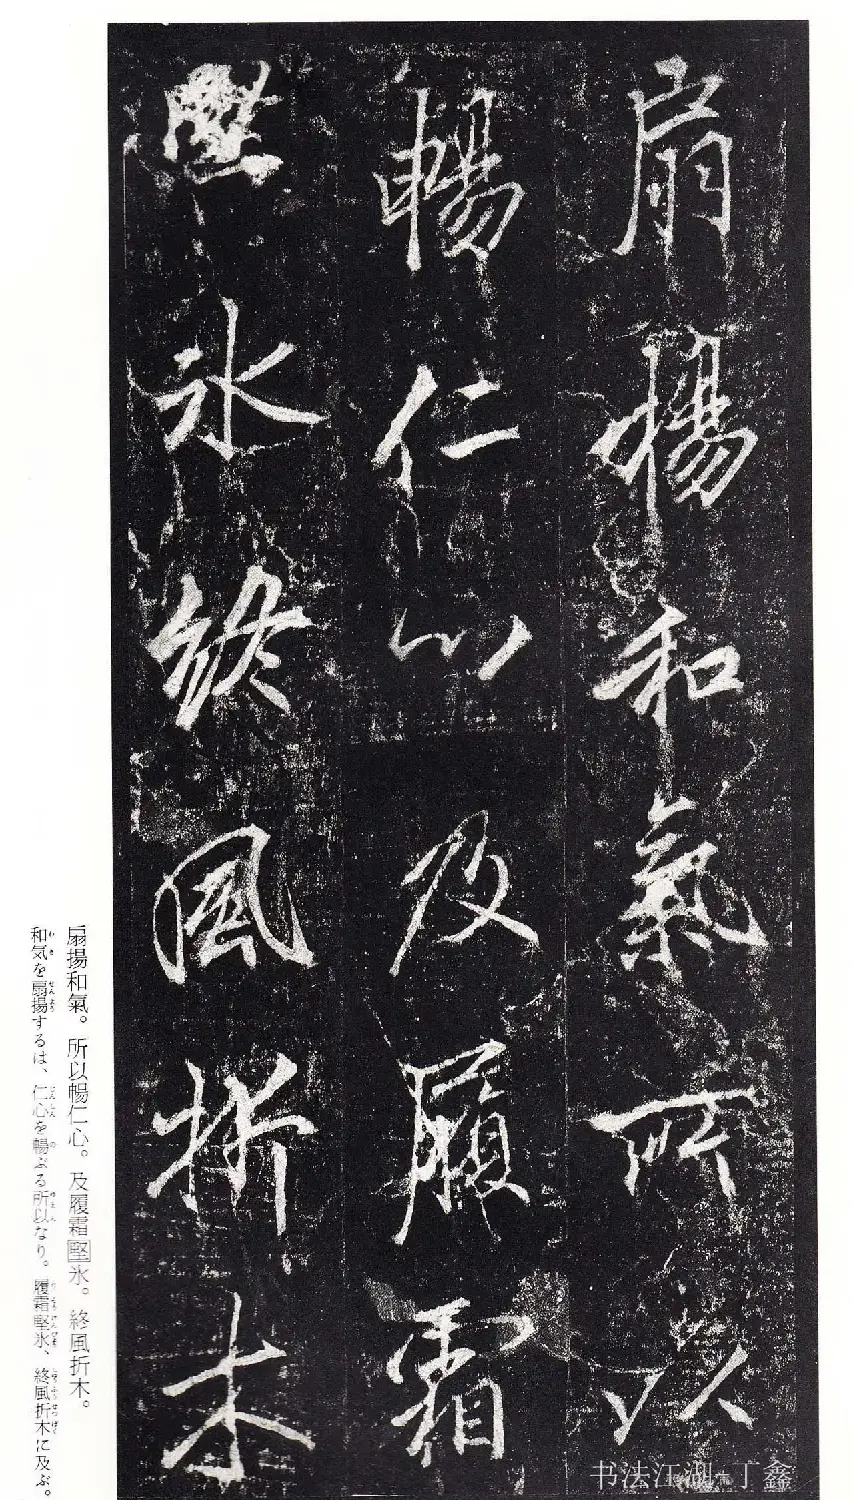 扇揚和氣所以
暢仁心及履霜
堅氷終風折木
扇揚和氣。所以暢仁心。及履霜堅氷。終風折木。
和気を扇揚するは、仁心を暢ぶる所以なり。履霜堅氷、終風折木に及ぶ。
书法江湖-丁鑫